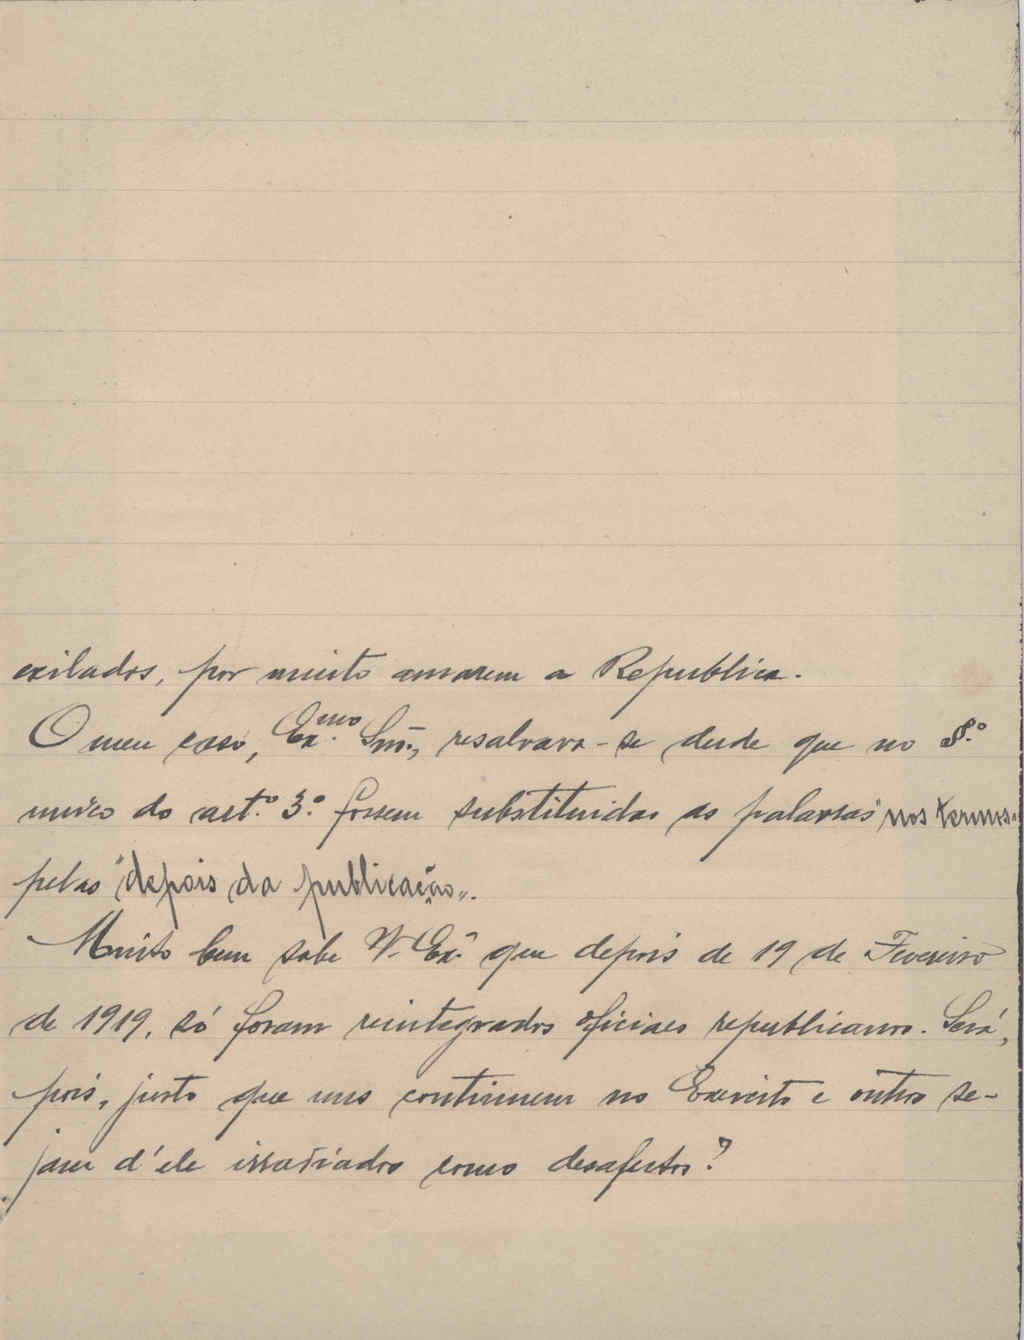 exilados, por muito amarem a Republica.
O meu caso, Ex.mo Snr., resalvava-se desde que no §.º
unico do art.º 3.º fossem substituidas as palavras "nos termos"
pelas "depois da publicação".
Muito bem sabe V. Ex.ª que depois de 19 de Fevereiro
de 1919, só foram reintegrados oficiaes republicanos. Será,
pois, justo que uns continuem no Exercito e outros se-
jam d'ele irradiados como desafectos?